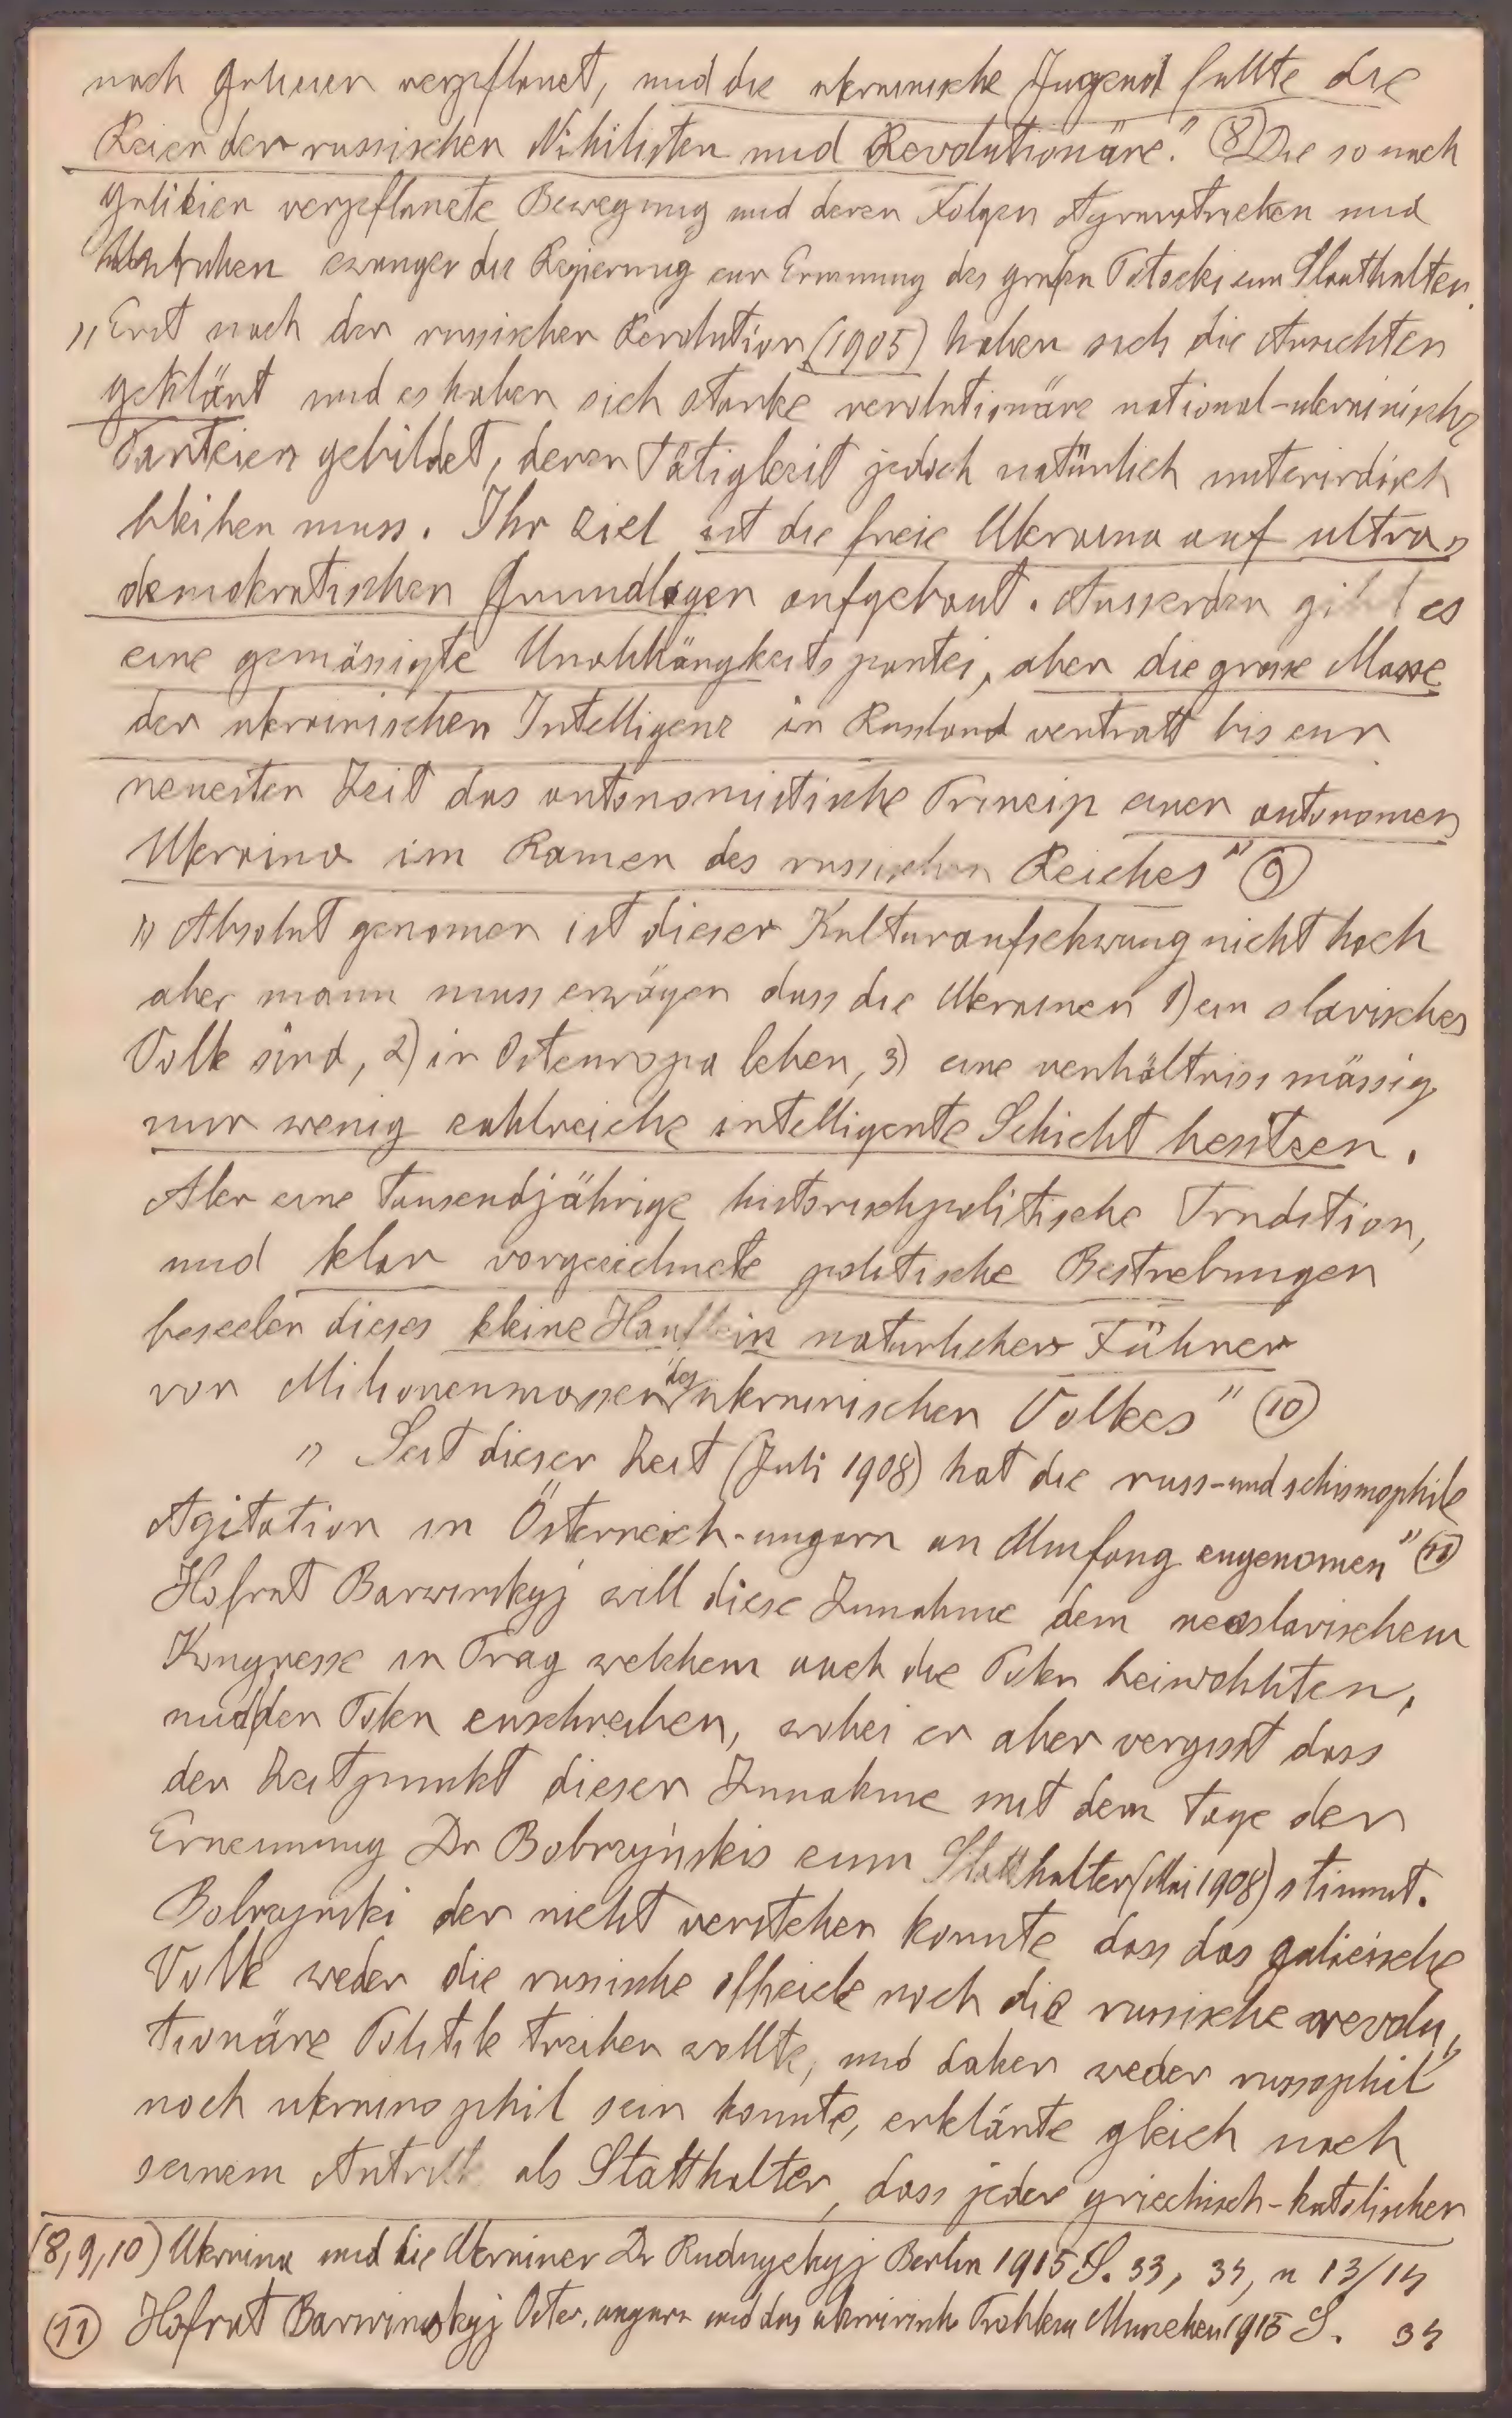 nach Galizien verpflanzt, und die ukrainische Jugend füllte die
Reien der russischen Nihilisten und Revolutionäre." (8) Die so nach
Galizien verpflanzte Bewegung und deren Folgen Agrarstreiken und
zwangen die Regierung zur Ernennung des grafen Potocki zum Statthalter.
„Erst nach der russischen Revolution (1905) haben sich die Ansichten
geklärt und es haben sich starke revolutionäre national-ukrainische
Parteien gebildet, deren Tätigkeit jedoch natürlich unterirdisch
bleiben muss. Ihr Ziel ist die freie Ukraina auf ultra„
demokratischen Grundlagen aufgebaut. Ausserdem gibt es
eine gemässigte Unabhängkeitspartei, aber die grosse Masse
der ukrainischen Intelligenz in Russland vertratt bis zur
neuesten Zeit das autonomistische Princip einer autonomen
Ukraina im Ramen des russischen Reiches" (9)
„Absolut genomen ist dieser Kulturaufschwung nicht hoch
aber mann muss erwägen dass die Ukrainer 1) ein slavisches
Volk sind, 2) in Osteuropa leben, 3) eine verhältniss mässig
nur wenig zahlreiche intelligente Schicht besitzen.
Aber eine tausendjährige historischpolitische Tradition,
und klar vorgezeichnete politische Bestrebungen
beseelen dieses kleine Hauflein naturlicher Führer
von Milionenmassen des ukrainischen Volkes" (10)
„Seit dieser Zeit (Juli 1908) hat die russ-und schismophile
Agitation in Österreich-ungarn an Umfang zugenomen" (11)
Hofrat Barwinskyj will diese Zunahme dem neoslavischem
Kongresse in Prag welchem auch die Polen beiwohnten,
und den Polen zuschreiben, wobei er aber vergisst dass
der Zeitpunkt dieser Zunahme mit dem Tage der
Ernennung Dr Bobrzyńskis zum Statthalter (Mai 1908) stimmt.
Bobrzynski der nicht verstehen konnte dass das galicische
Volk weder die russische officiele noch die russische revolu„
tionäre Politik treiben wollte, und daher weder russophil
noch ukrainophil sein konnte, erklärte gleich nach
seinem Antritt als Statthalter, dass jeder griechisch-katolischer
(8,9,10) Ukraina und die Ukrainer Dr Rudnyckyj Berlin 1915 S. 33, 34, u 13/14
(11) Hofrat Barwinskyj Oster. ungarn und das ukrainische Problem Munchen 1915 S. 34